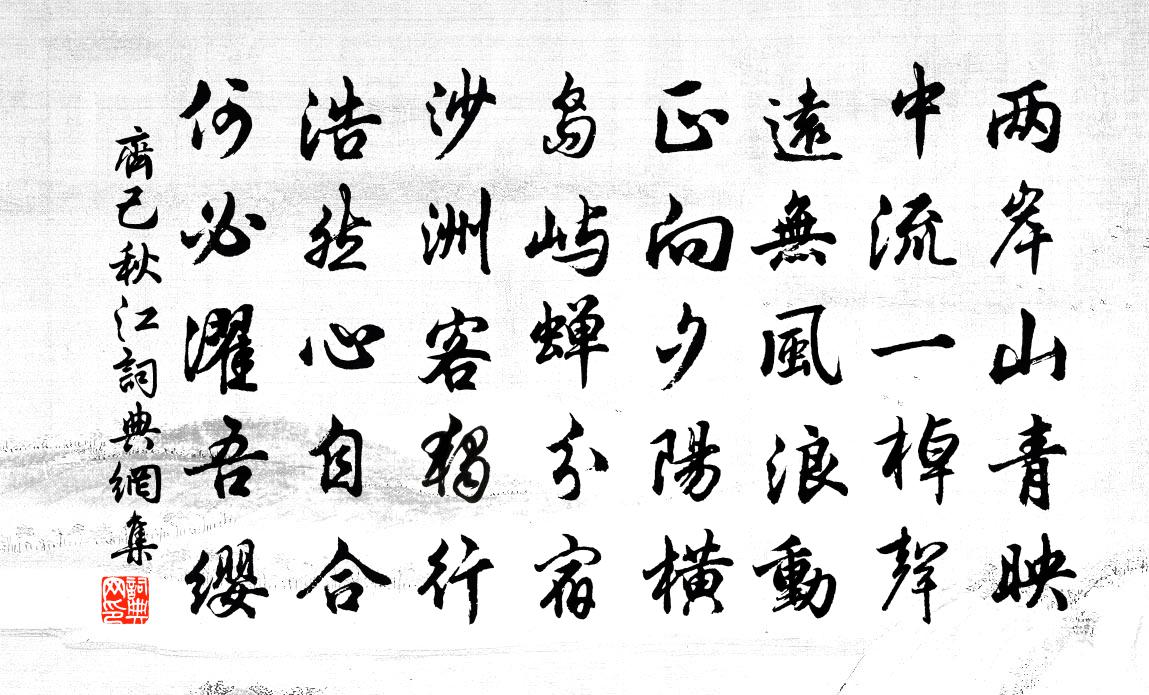 两岸山青映
中流一棹聲
遠無風浪動
正向夕陽橫
島嶼蝉分宿
沙洲客獨行
浩然心自合
何必濯吾纓
齊己秋江詞典網集
詞典网印